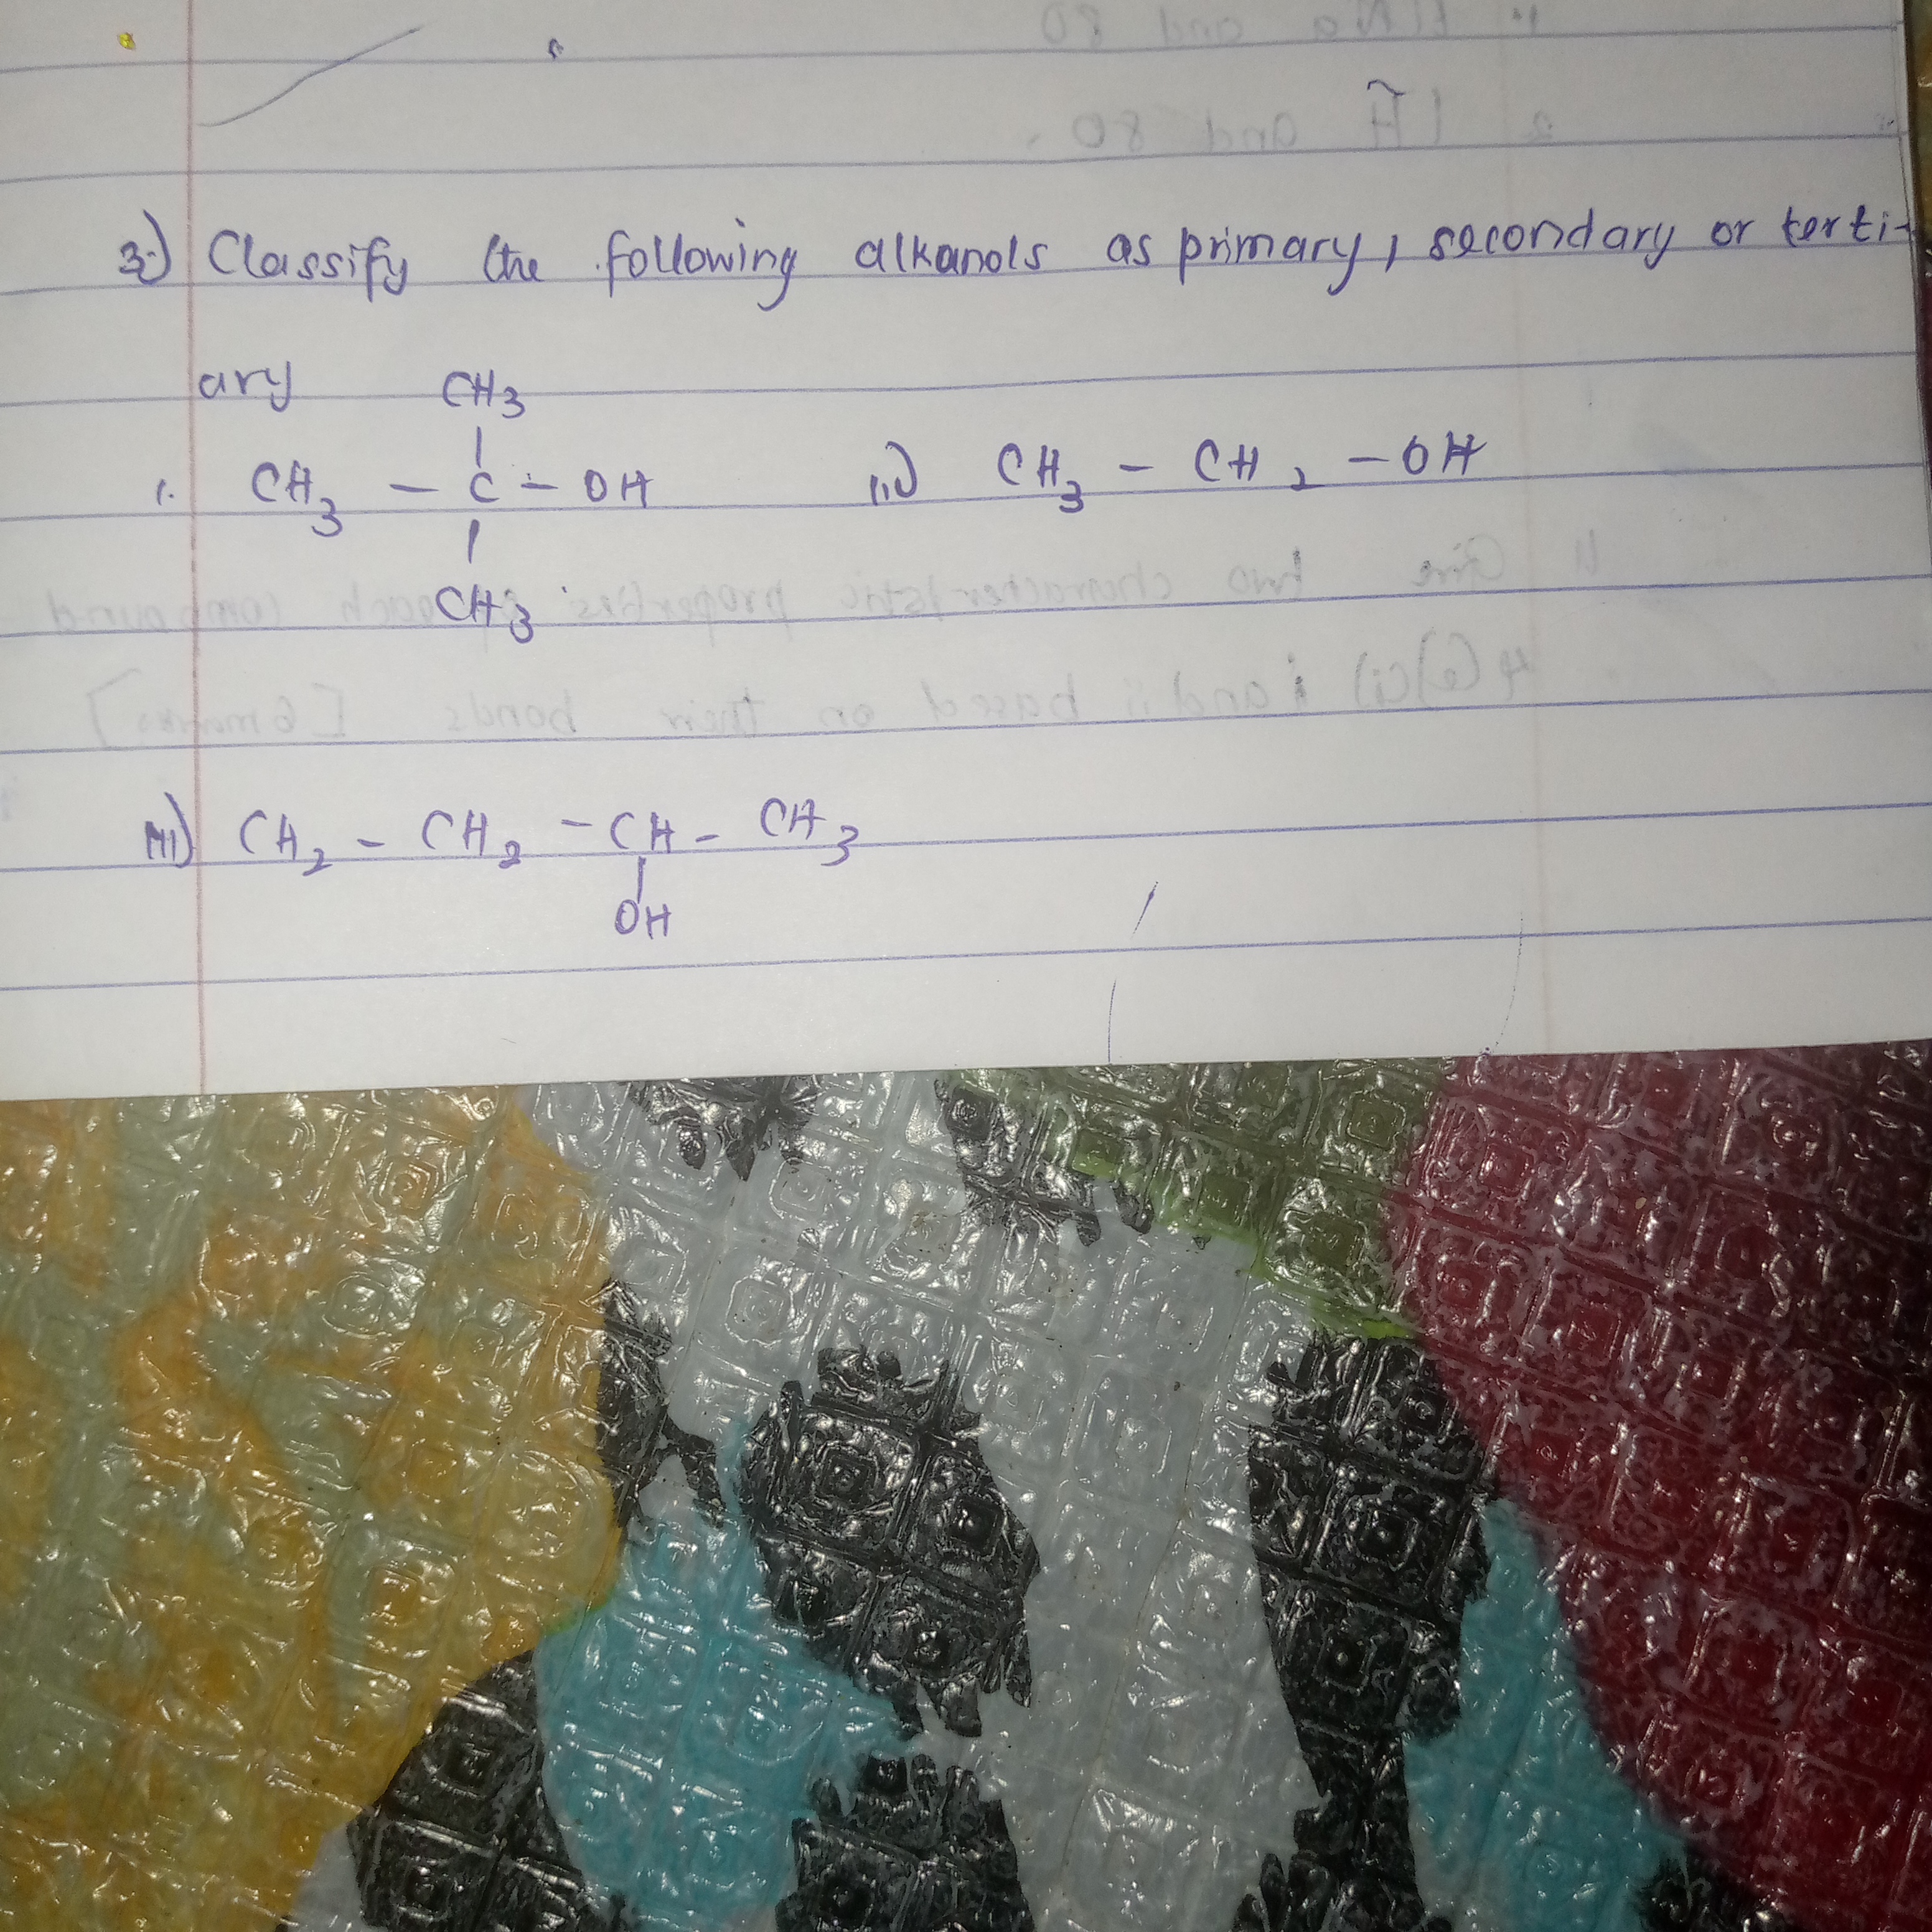 3.) Classify the following alkanols as primary, secondary or terti-
ary
CH3
|
i. CH3 – C – OH ii.) CH3 – CH2 – OH
|
CH3
iii) CH2 – CH2 – CH – CH3
|
OH